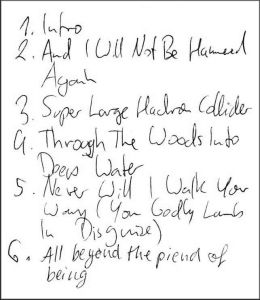 1. Intro
2. And I Will Not Be Hameed
Again
3. Super Large Hadron Collider
4. Through The Woods Into
Deep Water
5. Never Will I Walk Your
Way (You Godly Lamb
In Disguise)
6. All beyond the of
being